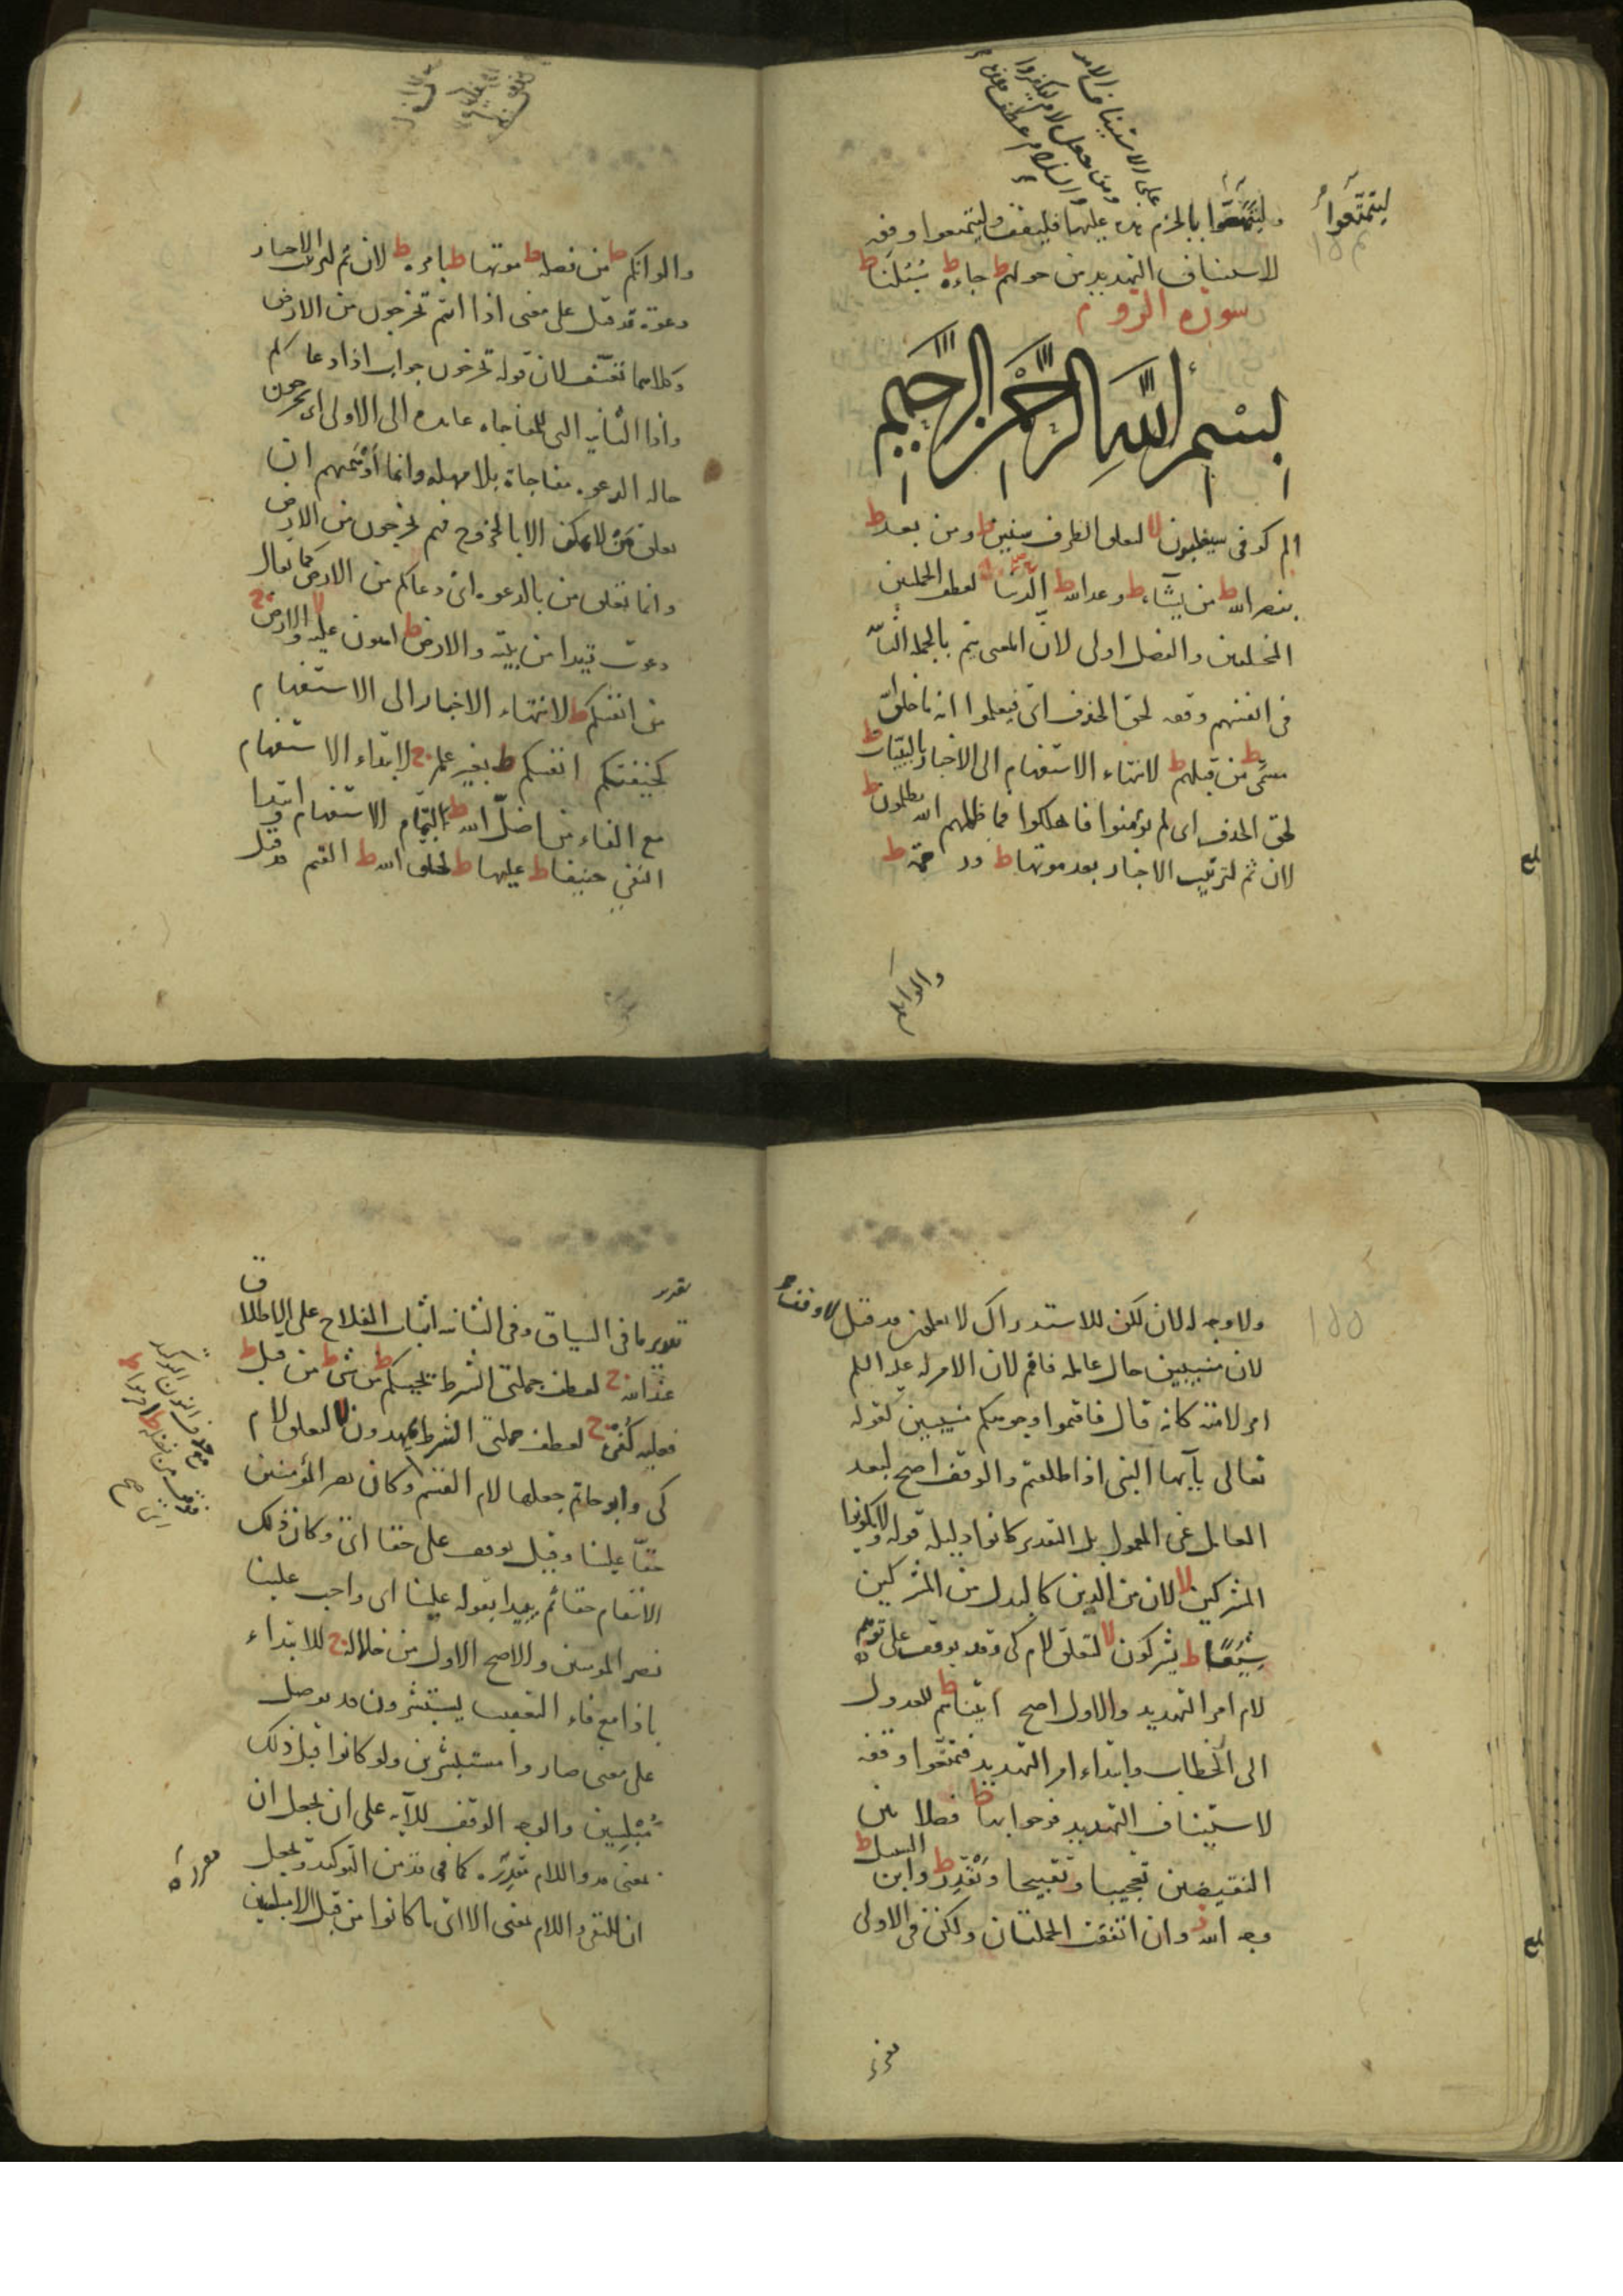 على الاستيناف الامر
ومن جعل لام ليكفروا
ليتمتعوا
وليتمتعوا بالجزم عليها فليقف وليتمتعوا وقفه
لاستيناف التهديد من حولهم ط جاءه ط سبلنا ط
سورة الروم
بسم الله الرحمن الرحيم
الم كوفى سيغلبون لا لتعلق الظرف سنين ط ومن بعد ط
بنصر الله ط من يشاء ط وعد الله ط الدنيا لعطف الجملتين
المختلفتين والفصل اولى لان المعنى يتم بالجملة الثانية
فى انفسهم وقفه لحق الحذف اى فيعلموا انه ما خلق الله
مسمى ط من قبلهم ط لانتهاء الاستفهام الى الاخبار بالبينات ط
لحق الحذف اى لم يؤمنوا فاهلكوا فما ظلمهم الله يظلمون ط
لان ثم لترتيب الاخبار بعد موتها ط ورحمة ط
والوانكم
والوانكم ط من فضله ط موتها ط بامره ط لان ثم لترتيب الاخبار
دعوة قد قيل على معنى اذا انتم تخرجون من الارض
وكلاهما تعسف لان قوله تخرجون جواب اذا دعاكم
واذا الثانية التى للمفاجاة عائدة الى الاولى اى تخرجون
حالة الدعوة مفاجاة بلا مهلة وانما اوهمهم ان
تعلق من لا يمكن الا بالخروج فهم يخرجون من الارض
وانما تعلق من بالدعوة اى دعاكم من الارض كما يقال
دعوت زيدا من بيته والارض ط اهون عليه والارض ج
من انفسكم ط لانتهاء الاخبار الى الاستفهام
كخيفتكم انفسكم ط بغير علم ج لابتداء الاستفهام
مع الفاء من اضل الله ط لتمام الاستفهام وابتداء
النفى حنيفا ط عليها ط لخلق الله ط القيم قد قيل
ولا وجه له لان لكن للاستدراك لا يعلمون قد قيل لا وقف
لان منيبين حال عامله فاقم لان الامر له عليه السلم
امر لامته كانه قال فاقيموا وجوهكم منيبين كقوله
تعالى يآيها النبى اذا طلقتم والوقف اصح لبعد
العامل عن المعمول بل التقدير كانوا دليله قوله ولا تكونوا
المشركين لا لان من الذين كالبدل من المشركين
شيعا ط يشركون لا لتعلق لام كى وقد يوقف على توهم
لام امر التهديد والاول اصح اتيناهم ط للعدول
الى الخطاب وابتداء امر التهديد فتمتعوا وقفه
لاستيناف التهديد فرحوا بها ط فصلا بين
النقيضين تعجيبا وتقبيحا ويقدر ط وابن السبيل ط
وجه الله ز وان اتفقت الجملتان ولكن فى الاولى
تقدير ما فى السياق وفى الثانية اثبات الفلاح على الاطلاق
عند الله ج لعطف جملتى الشرط يحييكم ط من شئ ط من قبل ط
فعليه كفره ج لعطف جملتى الشرط يمهدون لا لتعلق لام
كى وابو حاتم جعلها لام القسم وكان نصر المؤمنين
حقا علينا وقيل يوقف على حقا اى وكان ذلك
الانتقام حقا ثم يبدا بقوله علينا اى واجب علينا
نصر المومنين والاصح الاول من خلاله ج للابتداء
باذا مع فاء التعقيب يستبشرون قد يوصل
على معنى صاروا مستبشرين ولو كانوا قبل ذلك
مبلسين والوجه الوقف للآية على ان يجعل ان
بمعنى قد واللام مقدره كما فى قد من التوكيد ويجعل
ان للنفى واللام بمعنى الا اى ما كانوا من قبل الا مبلسين